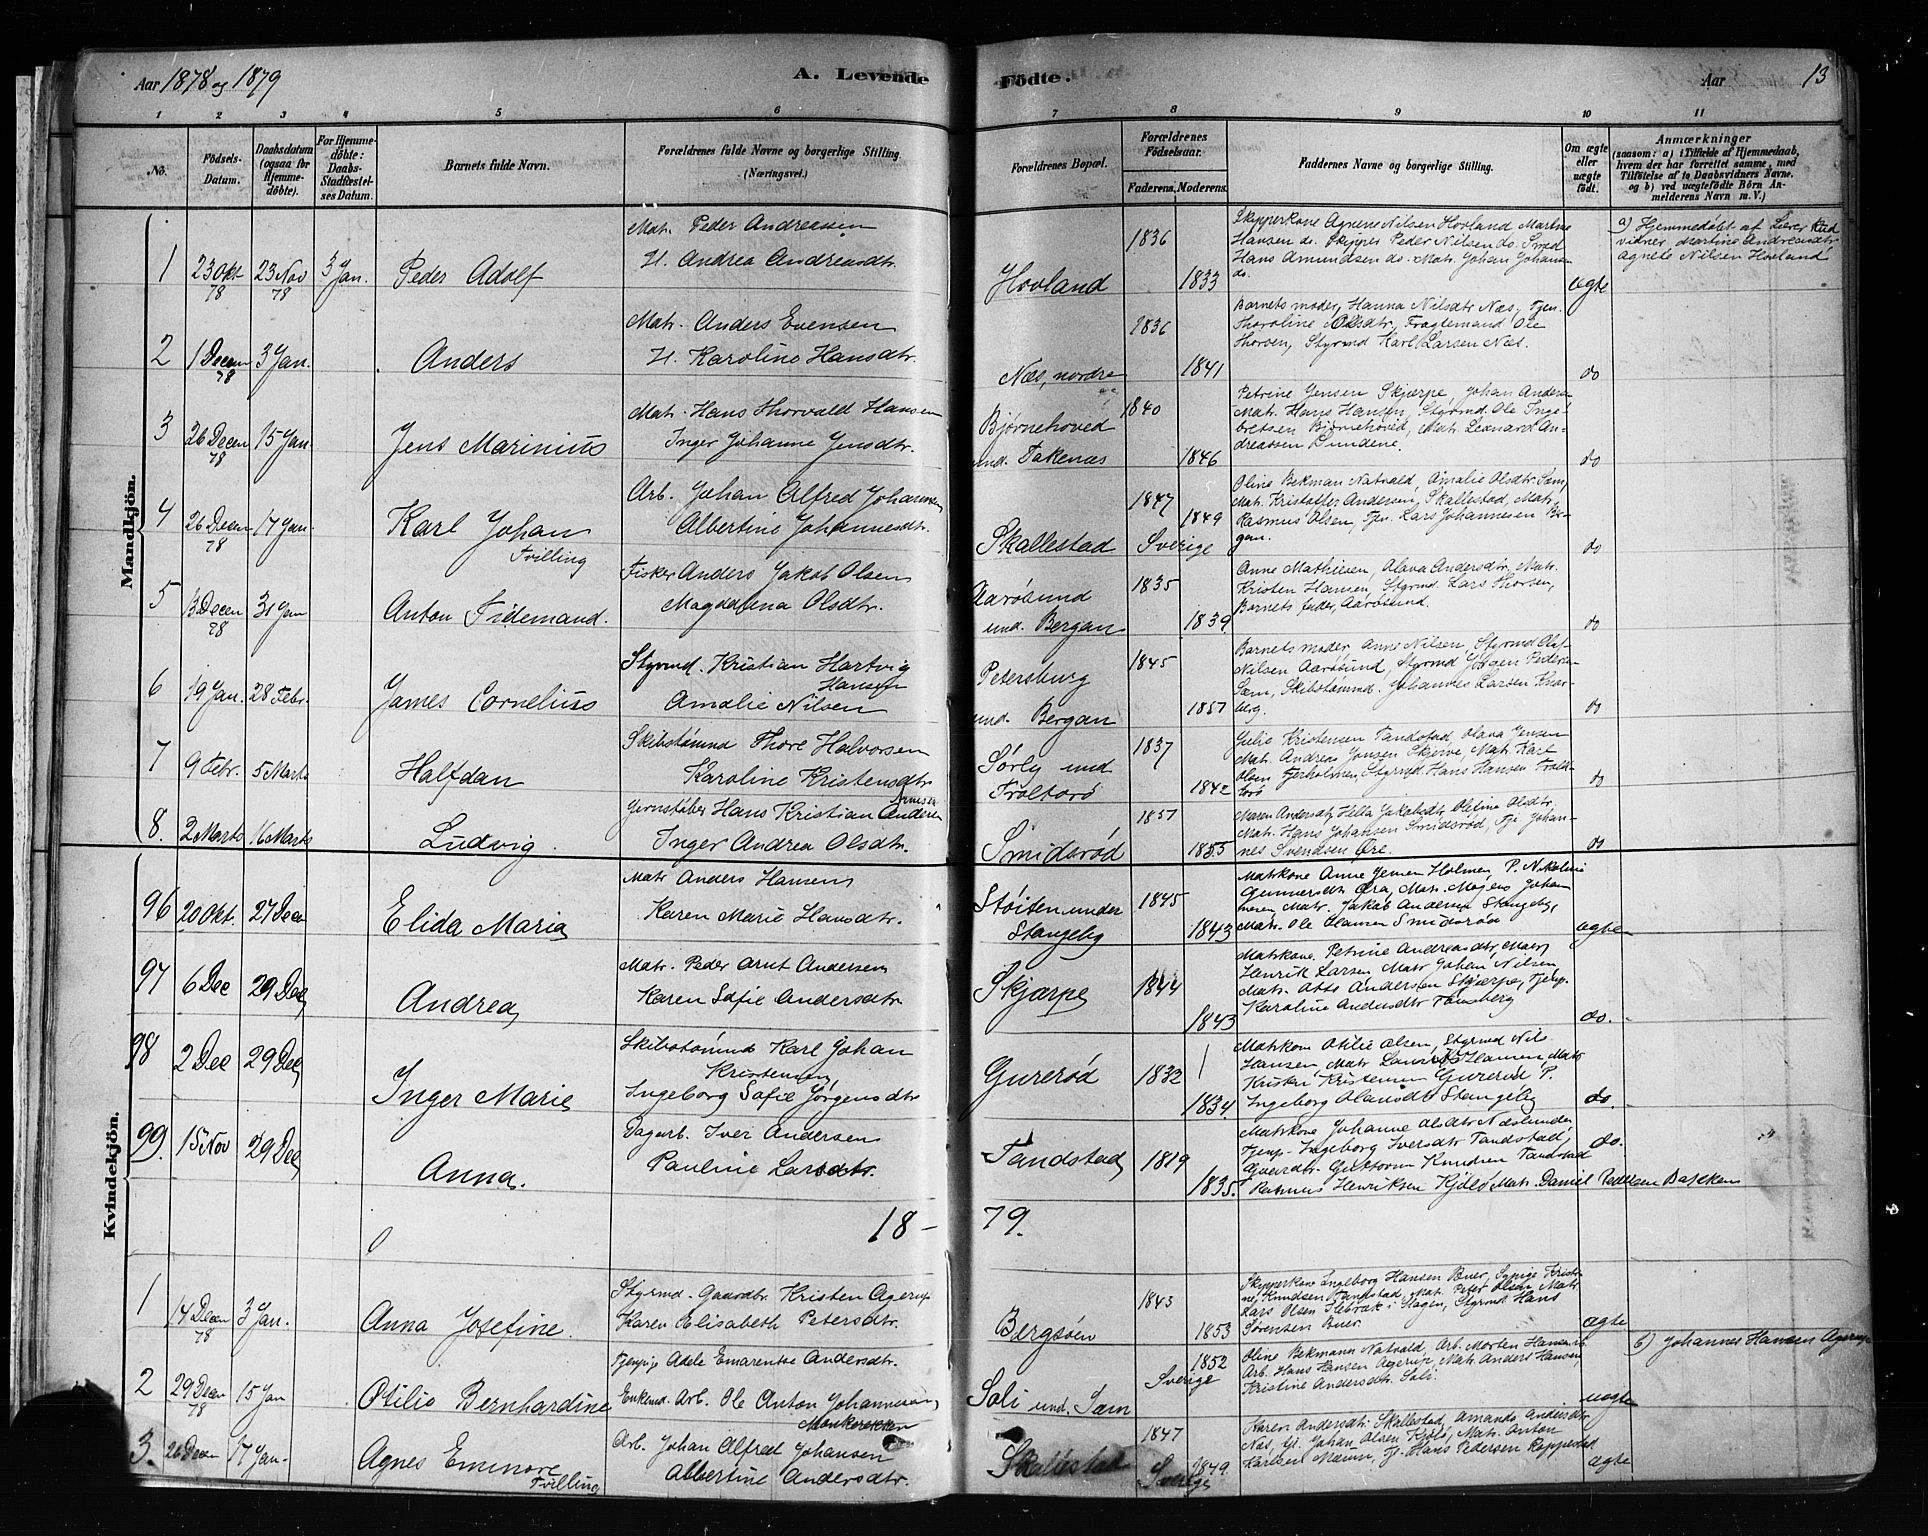 Aar 1878 og 1879
A. Levende
Födte.
Aar
13
1 2 3 4 5 6 7 8 9 10 11
No.
Födsels-
Datum.
Daabsdatum
(ogsaa for
Hjemme-
döbte).
For Hjemme-
döbte:
Daabs-
Stadfæstel-
ses Datum.
Barnets fulde Navn.
Forældrenes fulde Navne og borgerlige Stilling.
(Næringsvei.)
Forældrenes Bopæl.
Forældrenes
Födselsaar.
Faderens. Moderens.
Faddernes Navne og borgerlige Stilling.
Om ægte
eller
uægte
födt.
Anmærkninger
(saasom: a) i Tilfælde af Hjemmedaab,
hvem der har forrettet samme, med
Tilföielse af to Daabsvidners Navne.
og b) ved uægtefödte Börn An-
melderens Navn m. V.)
Mandkjön.
1 23 Okt 78 23 Nov 78 3 Jan. Peder Adolf
Mat. Peder Andreasen
H. Andrea Andreasdtr.
Hovland 1836 1833
Skipperkone Agnene Nilsen Hovland Martine
Hansen do. Skipper Peder Nilsen do. Smed
Hans Amundsen do. Mat. Johan Johansen
do.
ægte
a) Hjemmedöbt af Lærer
vidner, Martine Andreasdtr
Agnete Nilsen Hovland
2 1 Decem 78 3 Jan. Anders
Mat. Anders Evensen
H. Karoline Hansdtr.
Næs, nordre 1836 1841
Barnets moder, Hanna Nilsdtr Næs, Tjen.
Thoroline Olsdtr, Fragtemand Ole
Thorsen, Styrmd Karl Larsen Næs.
do
3 26 Decem 78 15 Jan. Jens Marinius
Mat. Hans Thorvald Hansen
Inger Johanne Jensdtr.
Bjørnehoved
und. Takenæs 1840 1846
Petrine Jensen Skjærpe, Johan Andersen
Mat. Hans Hansen, Styrmd. Ole Inge-
bretsen Bjørnehoved, Mat. Leonard An-
dreassen Lundene.
do
4 26 Decem 78 17 Jan. Karl Johan
Tvilling
Arb. Johan Alfred Johannesen
Albertine Johannesdtr.
Skallestad 1847 1849 Sverige
Oline Bekman Natvald, Amalie Olsdtr. Sem,
Mat. Kristoffer Andersen, Skallestad, Mat.
Rasmus Olsen, Tjen. Lars Johannesen Ber-
gan.
do
5 13 Decem 78 31 Jan Anton Tidemand.
Fisker Anders Jakob Olsen
Magdalena Olsdtr.
Aarøsund
und. Bergan 1835 1839
Anne Mathiesen, Olava Andersdtr, Mat.
Kristen Hansen, Styrmd. Lars Thorsen,
Barnets fader, Aarøsund.
do
6 19 Jan. 28 Febr. James Cornelius
Styrmd. Kristian Hartvig
Hansen
Amalie Nilsen
Petersburg
und. Bergan 1845 1857
Barnets moder, Anne Nilsen, Styrmd Olaf
Nilsen Aarøsund, Styrmd Jörgen Pedersen
Sem, Skibstømmd. Johannes Larsen Knar-
berg.
do
7 9 Febr. 5 Marts Halfdan
Skibstømmd Thore Halvorsen
Karoline Kristensdtr
Sørby und
Trolsorö 1837 1842
Julie Kristensen Tandstad, Olava Jensen
Mat. Andreas Jensen Skjerve, Mat. Karl
Olsen Fjerholmen, Styrmd. Hans Hansen
do
8. 2 Marts 16 Marts Ludvig.
Jernstøber Hans Kristian Andersen
Inger Andrea Olsdtr.
Smidsrød 1857 1855
Maren Andersdtr, Hella Jakobsdtr, Olefine Olsdtr.
Mat. Hans Johansen Smidsrød, Tje. Johan-
nes Svendsen Øre.
do
Kvindekjön.
96 20 Okt. 27 Dec Elida Maria
Matr Anders Hansen
Karen Marie Hansdtr.
Støiten under
Stangeby 1845 1843
Matrkone Anne Jensen Holmen, P. Nikoline
Gunnersdtr Øra, Matr. Mogens Johan
nesen Matr. Jakob Andersen Stangeby,
Matr. Ole Olausen Smidsrød
ægte
97 6 Dec 29 Dec Andrea
Matr. Peder Arnt Andersen
Karen Sofie Andersdtr
Skjærpe 1844 1843
Matrkone Petrine Andreasdtr, Matr
Henrik Larsen Matr Johan Nilsen
Matr. Otto Andersen Skjærpe, Tjenp.
Karoline Andersdtr Tønsberg
do.
98 2 Dec 29 Dec Inger Marie
Skibstømmd Karl Johan
Kristensen
Ingeborg Sofie Jørgensdtr
Gurerød 1832 1834
Matrkone Otilie Olsen, Styrmd Nils
Hansen, Matr Hansen, Matr
Kristen Kristensen Gurerød P.
Ingeborg Olausdtr Stangeby
do.
99. 15 Nov 29 Dec Anna.
Dagarb. Iver Andersen
Pauline Larsdtr.
Tandstad 1819 1835.
Matrkone Johanne Olsdtr Næslunden
Tjenp. Ingeborg Iversdtr Tandstad,
Gaardbr. Guttorm Knudsen Tandstad
Rasmus Henriksen Kjølø Matr. Daniel Pedersen Bakken
do.
18 - 79.
1 14 Decem 78 3 Jan. Anna Josefine.
Styrmd. Gaardbr. Kristen Agerup
Karen Elisabeth Petersdtr.
Bergsøen 1843 1853
Skipperkone Ingeborg Hansen Buer, Sypige Kristi-
ne Knudsen Tandstad, Mat. Peter Olsen Mat.
Lars Olsen Ilebræk i Slagen, Styrmd Hans
Sørensen Buer.
ægte
2 29 Decem 78 15 Jan Otilie Bernhardine
Tjenpige Adele Emarentse Andersdtr.
Enkemd. Arb. Ole Anton Johannesen,
Munkerekken
Soli und. Sem 1852 Sverige
Oline Bekmann Natvald, Arb. Morten Hansen
Arb. Hans Hansen Agerup, Mat. Anders Hansen,
Kristine Andersdtr. Soli.
uægte
b) Johannes Hansen Agerup
3. 26 Decem 17 Jan. Agnes Eminore
Tvilling
Arb. Johan Alfred Johansen
Albertine Andersdtr.
Skallestad 1847 1849 Sverige
Karen Andersdtr. Skallestad, Amanda Andersdtr
Næs, Gl. Johan Olsen Kjølø, Mat. Anton
Karlsen Mænn, Tj. Hans Pedersen Rappestad
ægte